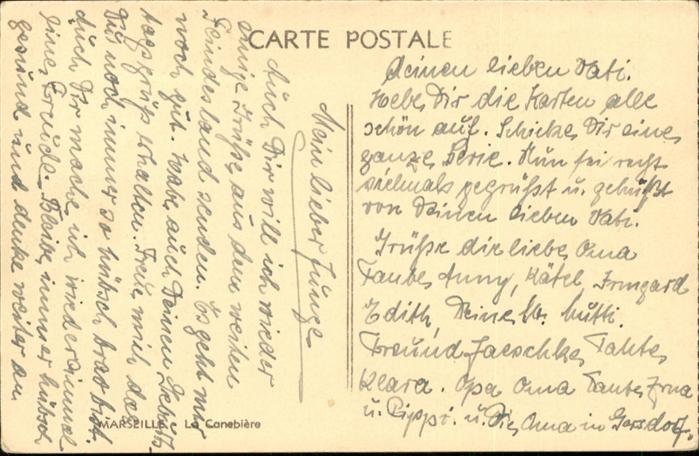 CARTE POSTALE
Mein lieber Junge
Auch Dir will ich wieder
einige Grüße aus dem weiten
Feindesland senden. Es geht mir
noch gut. Habe auch Deinen Geburts-
tagsgruß erhalten. Freue mich das
Du noch immer so hübsch brav bist.
Auch Dir mache ich wiedereinmal
eine Freude. Bleibe immer hübsch
gesund und denke weiter an
Deinen lieben Vati.
Hebe Dir die Karten alle
schön auf. Schicke Dir eine
ganze Serie. Nun sei recht
vielmals gegrüßt u. geküßt
von Deinen lieben Vati.
Grüße die liebe Oma
Tante Anny, Kätel, Irmgard
Edith, Deine lb. Mutti.
Freund Jaeschke, Tante
Klara. Opa Oma Tante Erna
u. Pippi. u. Die Oma in Gersdorf.
MARSEILLE La Canebière